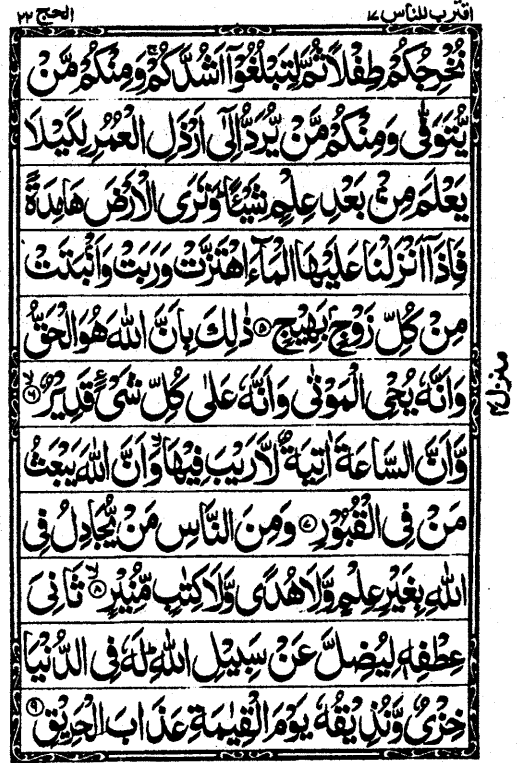 اقترب للناس ١٧
الحج ٢٢
نُخْرِجُكُمْ طِفْلًا ثُمَّ لِتَبْلُغُوْۤا اَشُدَّكُمْ ۚ وَمِنْكُمْ مَّنْ
يُّتَوَفّٰى وَمِنْكُمْ مَّنْ يُّرَدُّ اِلٰۤى اَرْذَلِ الْعُمُرِ لِكَيْلَا
يَعْلَمَ مِنْۢ بَعْدِ عِلْمٍ شَيْـًٔا ؕ وَتَرَى الْاَرْضَ هَامِدَةً
فَاِذَاۤ اَنْزَلْنَا عَلَيْهَا الْمَآءَ اهْتَزَّتْ وَرَبَتْ وَاَنْۢبَتَتْ
مِنْ كُلِّ زَوْجٍۭ بَهِيْجٍ ۝٥ ذٰلِكَ بِاَنَّ اللّٰهَ هُوَ الْحَقُّ
وَاَنَّهٗ يُحْيِ الْمَوْتٰى وَاَنَّهٗ عَلٰى كُلِّ شَيْءٍ قَدِيْرٌ ۙ۝٦
وَّاَنَّ السَّاعَةَ اٰتِيَةٌ لَّا رَيْبَ فِيْهَا ۙ وَاَنَّ اللّٰهَ يَبْعَثُ
مَنْ فِى الْقُبُوْرِ ۝٧ وَمِنَ النَّاسِ مَنْ يُّجَادِلُ فِى
اللّٰهِ بِغَيْرِ عِلْمٍ وَّلَا هُدًى وَّلَا كِتٰبٍ مُّنِيْرٍ ۙ۝٨ ثَانِيَ
عِطْفِهٖ لِيُضِلَّ عَنْ سَبِيْلِ اللّٰهِ ؕ لَهٗ فِى الدُّنْيَا
خِزْىٌ وَّنُذِيْقُهٗ يَوْمَ الْقِيٰمَةِ عَذَابَ الْحَرِيْقِ ۝٩
منزل ٤